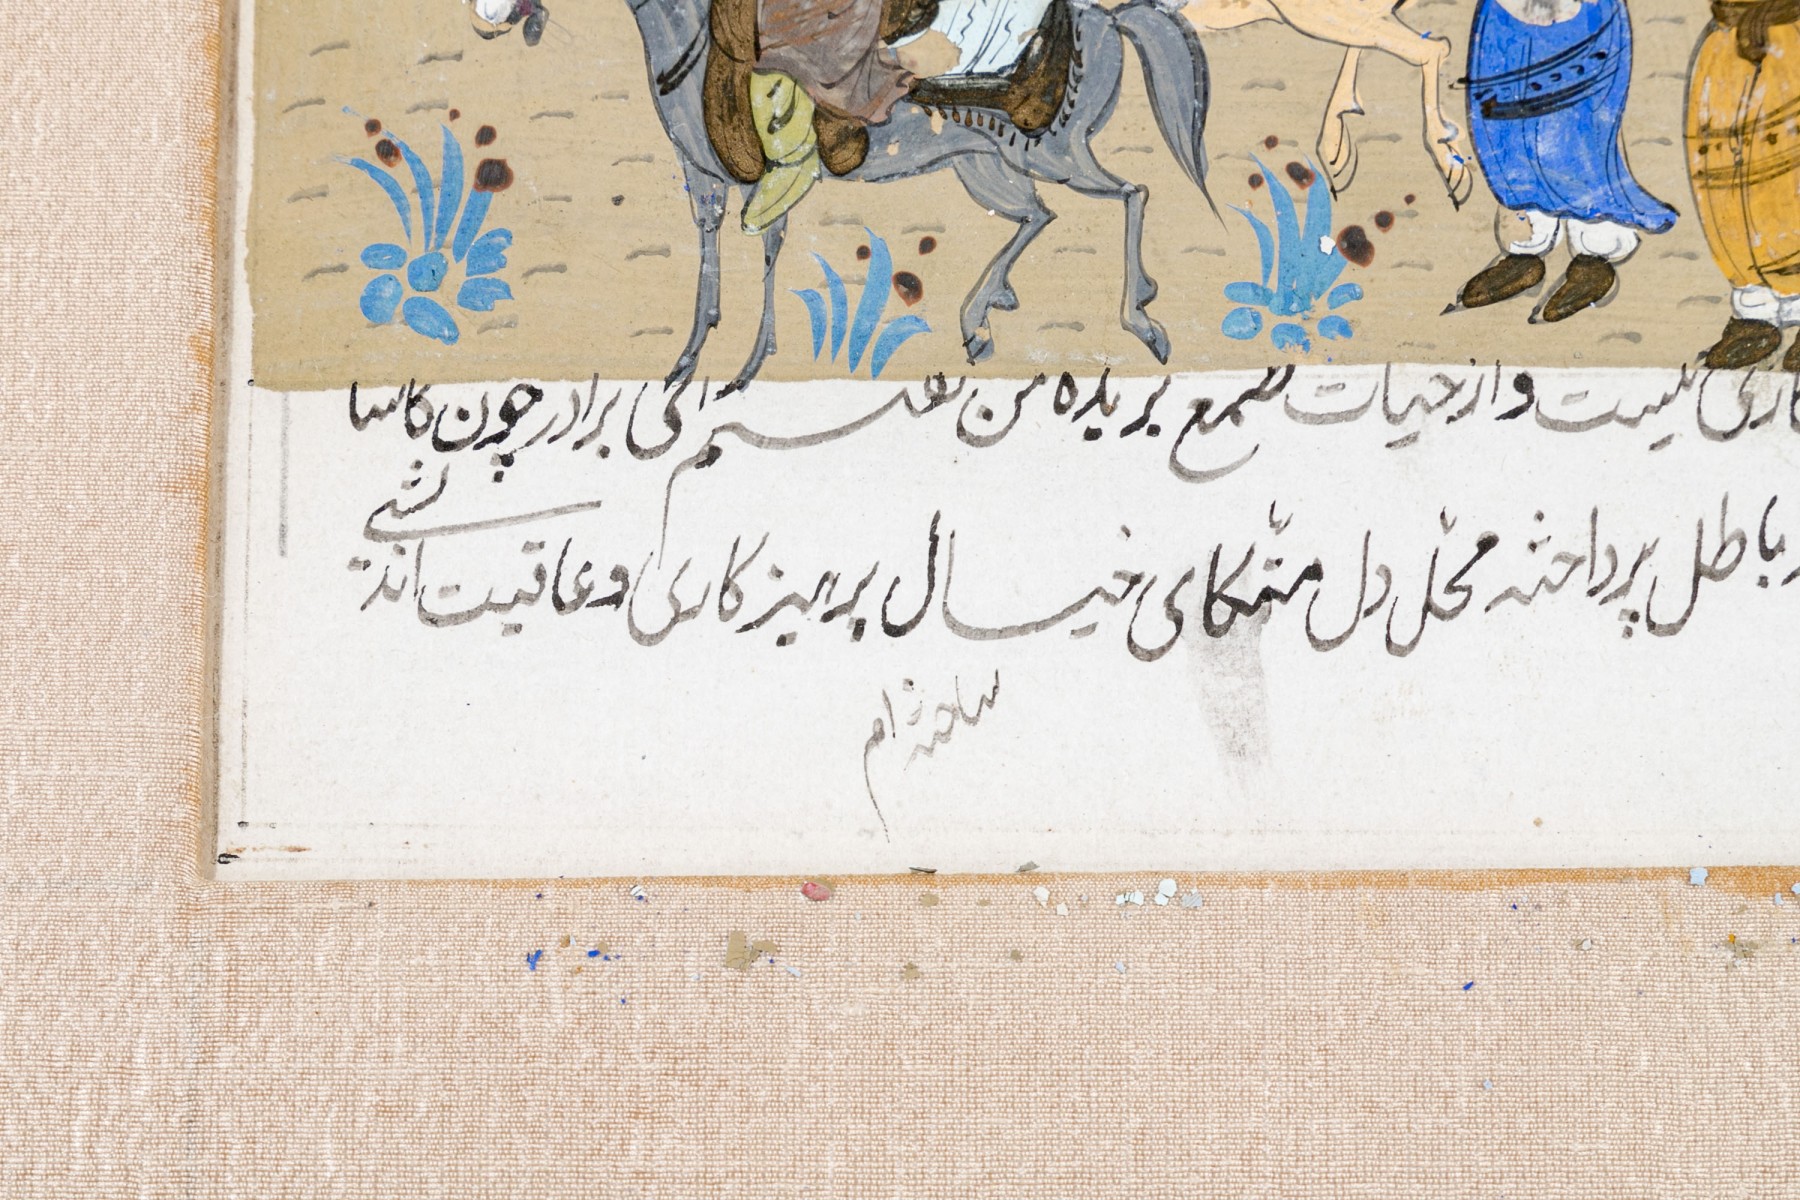 نیست و از حیات طمع بریده من نفسم اکی برادر چون کاسا
باطل پرداخته محل دل متکای خیال پرهیزکاری و عاقبت اند
ساخته ام